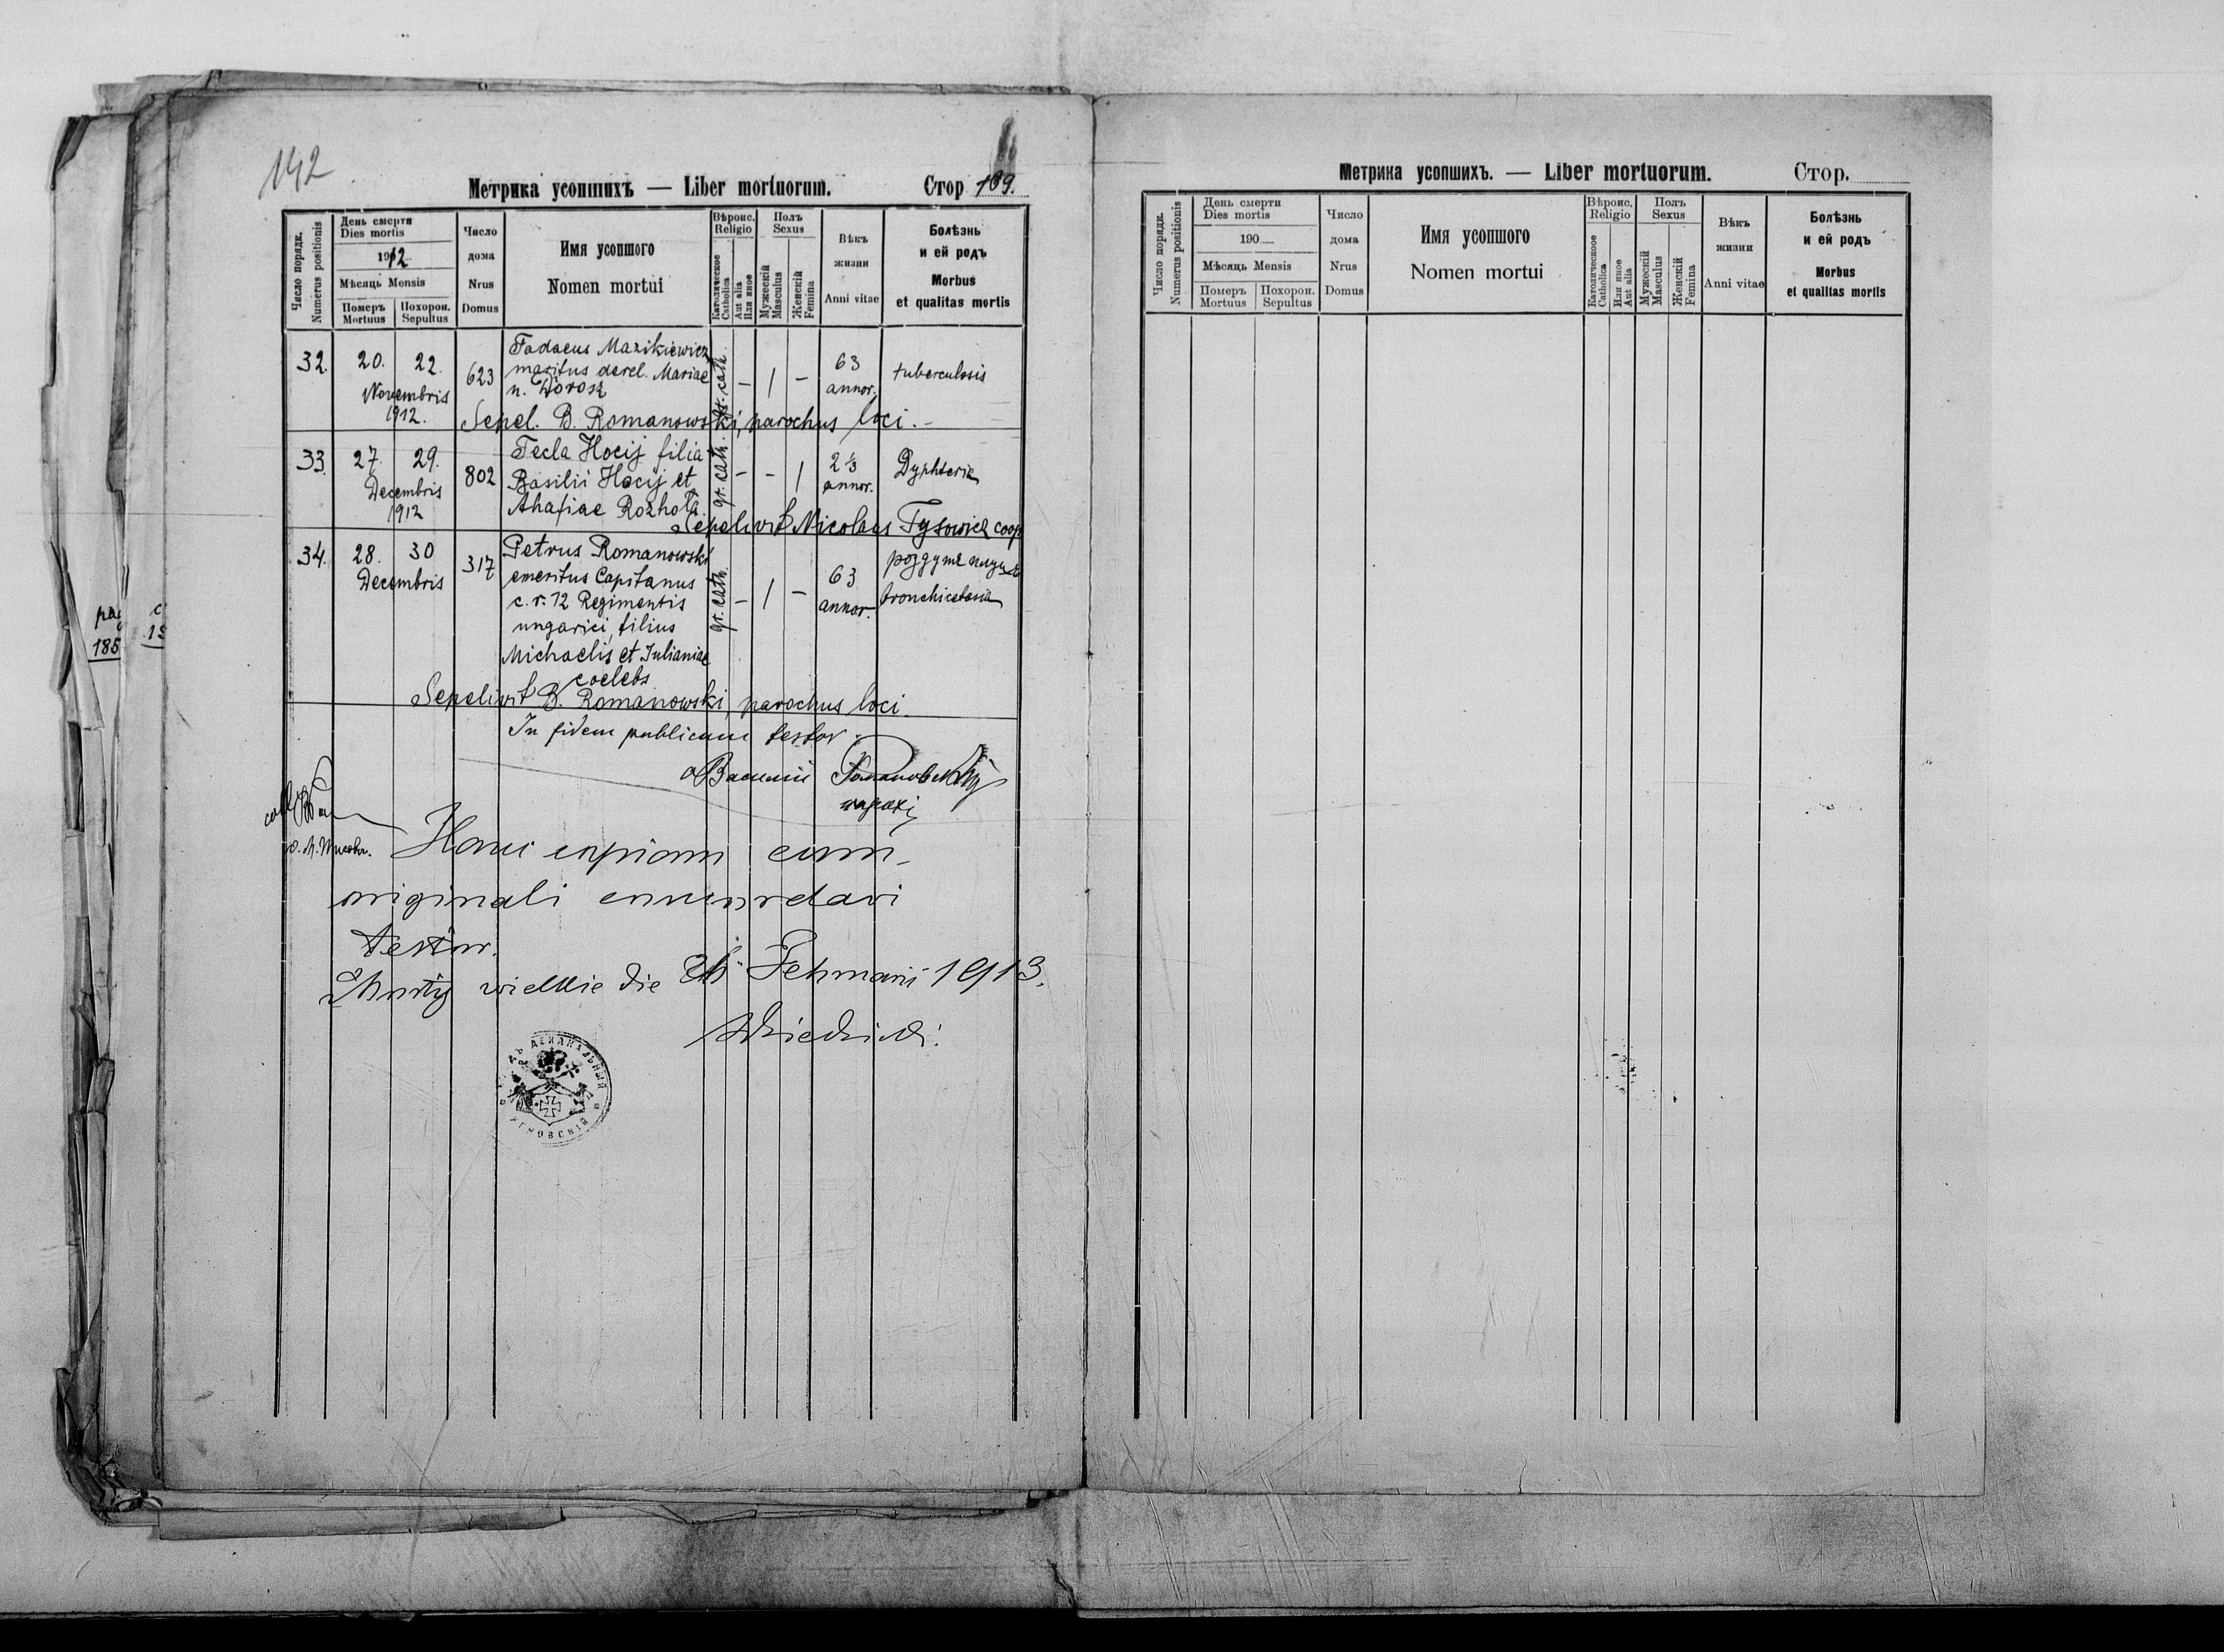 142
Метрика усопшихъ — Liber mortuorum.
Стор 139.
Число порядк.
Numerus positionis
День смерти
Dies mortis
1912
Мѣсяць Mensis
Померъ
Mortuus
Похорон.
Sepultus
Число
дома
Nrus
Domus
Имя усопшого
Nomen mortui
Вѣроис.
Religio
Католическое
Catholica
Aut alia
Или иное
Полъ
Sexus
Мужескій
Masculus
Женскій
Femina
Вѣкъ
жизни
Anni vitae
Болѣзнь
и ей родъ
Morbus
et qualitas mortis
32. 20. 22. Novembris 1912. 623
Tadaeus Mazikiewicz
maritus derel. Mariae
n. Dorosz
gr. cath. – 1 – 63 annor. tuberculosis
Sepel. B. Romanowski, parochus loci. –
33. 27. 29. Decembris 1912 802
Tecla Hocij filia
Basilii Hocij et
Ahafiae Rozhota.
gr. cath. – – 1 2 ⅓ annor. Dyphteria
Sepelivit Nicolaus Tysowicz coop
34. 28. 30 Decembris 317
Petrus Romanowski
emeritus Capitanus
c. r. 12 Regimentis
ungarici, filius
Michaelis et Julianiae
coelebs
gr. cath. – 1 – 63 annor.
bronchicetosia
Sepelivit B. Romanowski, parochus loci.
In fidem publicam testor
Василій Романовскій
парохъ
Hanc copiam cum
originali concordari
testor.
wielkie die 26 Februarii 1913.
Метрика усопшихъ. — Liber mortuorum.
Стор.
Число порядк.
Numerus positionis
День смерти
Dies mortis
190
Мѣсяць Mensis
Померъ
Mortuus
Похорон.
Sepultus
Число
дома
Nrus
Domus
Имя усопшого
Nomen mortui
Вѣроис.
Religio
Католическое
Catholica
Или иное
Aut alia
Полъ
Sexus
Мужескій
Masculus
Женскій
Femina
Вѣкъ
жизни
Anni vitae
Болѣзнь
и ей родъ
Morbus
et qualitas mortis